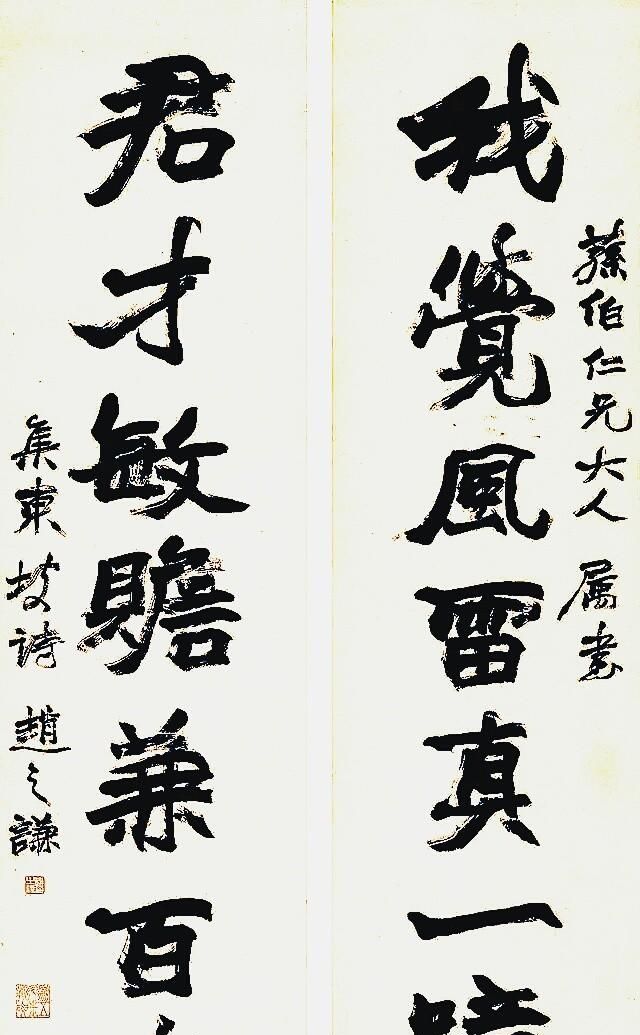 蓀伯仁兄大人 属書
我覺風雷真一
君才敏贍兼百
集東坡詩 趙之謙